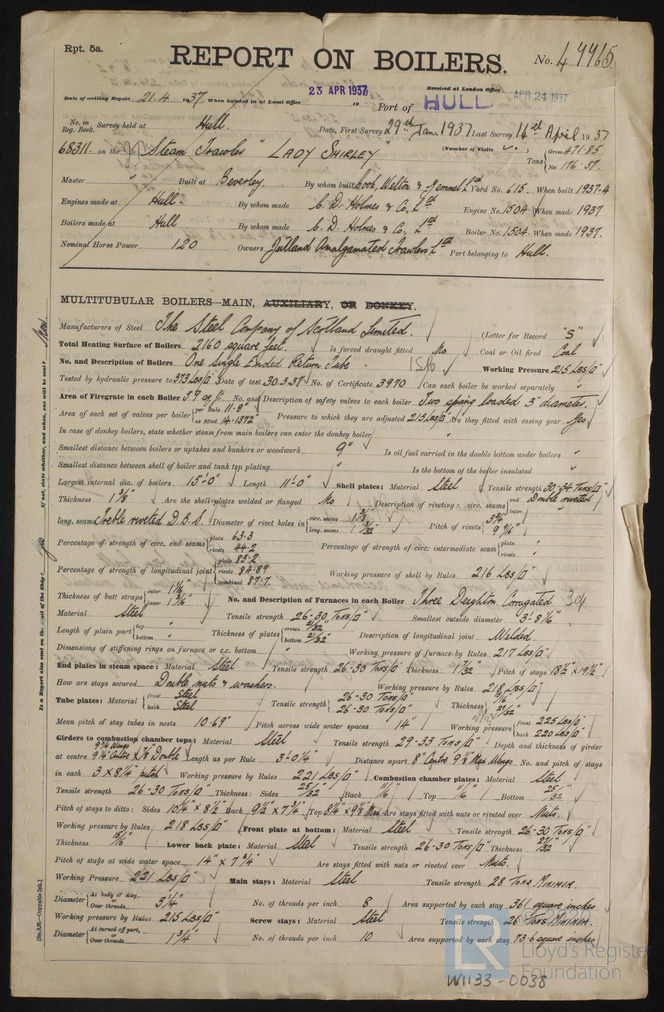 Rpt. 5a.
REPORT ON BOILERS.
No. 44465
Received at London Office APR 24 1937
Date of writing Report 21.4.1937. When handed in at Local Office 23 APR 1937 19 Port of HULL
No. in Reg. Book. Survey held at Hull. Date, First Survey 29th Jan 1937 Last Survey 16th April 1937
68311. on the Steam Trawler "LADY SHIRLEY" (Number of Visits ) Tons Gross 471.85 Net 176.37.
Master " Built at Beverley. By whom built Cook, Welton & Gemmell Ltd Yard No. 615. When built 1937-4
Engines made at Hull. By whom made C. D. Holmes & Co, Ltd Engine No. 1504 When made 1937
Boilers made at Hull By whom made C. D. Holmes & Co, Ltd Boiler No. 1504. When made 1937.
Nominal Horse Power 120 Owners Jutland Amalgamated Trawlers Ltd Port belonging to Hull.
MULTITUBULAR BOILERS—MAIN, AUXILIARY, OR DONKEY.
Manufacturers of Steel The Steel Company of Scotland Limited. (Letter for Record "S"
Total Heating Surface of Boilers 2160 square feet. Is forced draught fitted No Coal or Oil fired Coal
No. and Description of Boilers One Single Ended Return Tube Working Pressure 215 Lbs/□"
Tested by hydraulic pressure to 373 Lbs/□" Date of test 30.3.37 No. of Certificate 3970 Can each boiler be worked separately "
Area of Firegrate in each Boiler No. and Description of safety valves to each boiler Two spring loaded 3" diameter.
Area of each set of valves per boiler per Rule 11.8" as fitted 14.1372" Pressure to which they are adjusted 215 Lbs/□" Are they fitted with easing gear Yes
In case of donkey boilers, state whether steam from main boilers can enter the donkey boiler "
Smallest distance between boilers or uptakes and bunkers or woodwork 9" Is oil fuel carried in the double bottom under boilers "
Smallest distance between shell of boiler and tank top plating " Is the bottom of the boiler insulated "
Largest internal dia. of boilers 15'-0" Length 11'-0" Shell plates: Material Steel Tensile strength 30-34 Tons/□"
Thickness Are the shell plates welded or flanged No Description of riveting: circ. seams end Double riveted inter.
long. seam Treble riveted D.B.S. Diameter of rivet holes in circ. seams long. seams Pitch of rivets
Percentage of strength of circ. end seams plate 63.3 rivets 44.2 Percentage of strength of circ. intermediate seam plate " rivets "
Percentage of strength of longitudinal joint plate 85.2 rivets combined 87.7. Working pressure of shell by Rules 216 Lbs/□"
Thickness of butt straps outer inner 1 3/16" No. and Description of Furnaces in each Boiler Three Deighton Corrugated
Material Steel Tensile strength 26-30 Tons/□" Smallest outside diameter 3'-8 1/16"
Length of plain part top " bottom " Thickness of plates crown 21/32" bottom 21/32" Description of longitudinal joint Welded.
Dimensions of stiffening rings on furnace or c.c. bottom " Working pressure of furnace by Rules 217 Lbs/□"
End plates in steam space: Material Steel Tensile strength 26-30 Tons/□" Thickness 1 7/32" Pitch of stays 18 1/2" x 19 1/2"
How are stays secured Double nuts & washers. Working pressure by Rules 218 Lbs/□"
Tube plates: Material front Steel back Steel Tensile strength 26-30 Tons/□" 26-30 Tons/□" Thickness
Mean pitch of stay tubes in nests 10.69" Pitch across wide water spaces 14" Working pressure front 225 Lbs/□" back 220 Lbs/□"
Girders to combustion chamber tops: Material Steel Tensile strength 29-33 Tons/□" Depth and thickness of girder
at centre Length as per Rule 3'-0 1/4" Distance apart No. and pitch of stays
in each 3 x 8 1/4" pitch Working pressure by Rules 221 Lbs/□" Combustion chamber plates: Material Steel
Tensile strength 26-30 Tons/□" Thickness: Sides 25/32" Back 11/16" Top 11/16" Bottom 25/32"
Pitch of stays to ditto: Sides 10 1/4" x 8 1/2" Back 9 1/2" x 7 3/4" Top Are stays fitted with nuts or riveted over Nuts.
Working pressure by Rules 218 Lbs/□" Front plate at bottom: Material Steel Tensile strength 26-30 Tons/□"
Thickness 15/16" Lower back plate: Material Steel Tensile strength 26-30 Tons/□" Thickness 27/32"
Pitch of stays at wide water space 14" x 7 3/4" Are stays fitted with nuts or riveted over Nuts.
Working Pressure 221 Lbs/□" Main stays: Material Steel Tensile strength 28 Tons Minimum.
Diameter At body of stay, or Over threads. 3 1/4" No. of threads per inch 8 Area supported by each stay 361 square inches
Working pressure by Rules 215 Lbs/□" Screw stays: Material Steel Tensile strength 26 Tons Minimum.
Diameter At turned off part, or Over threads. 1 3/4" No. of threads per inch 10 Area supported by each stay 73.6 square inches
Lloyd's Register
Foundation
W1133-0038